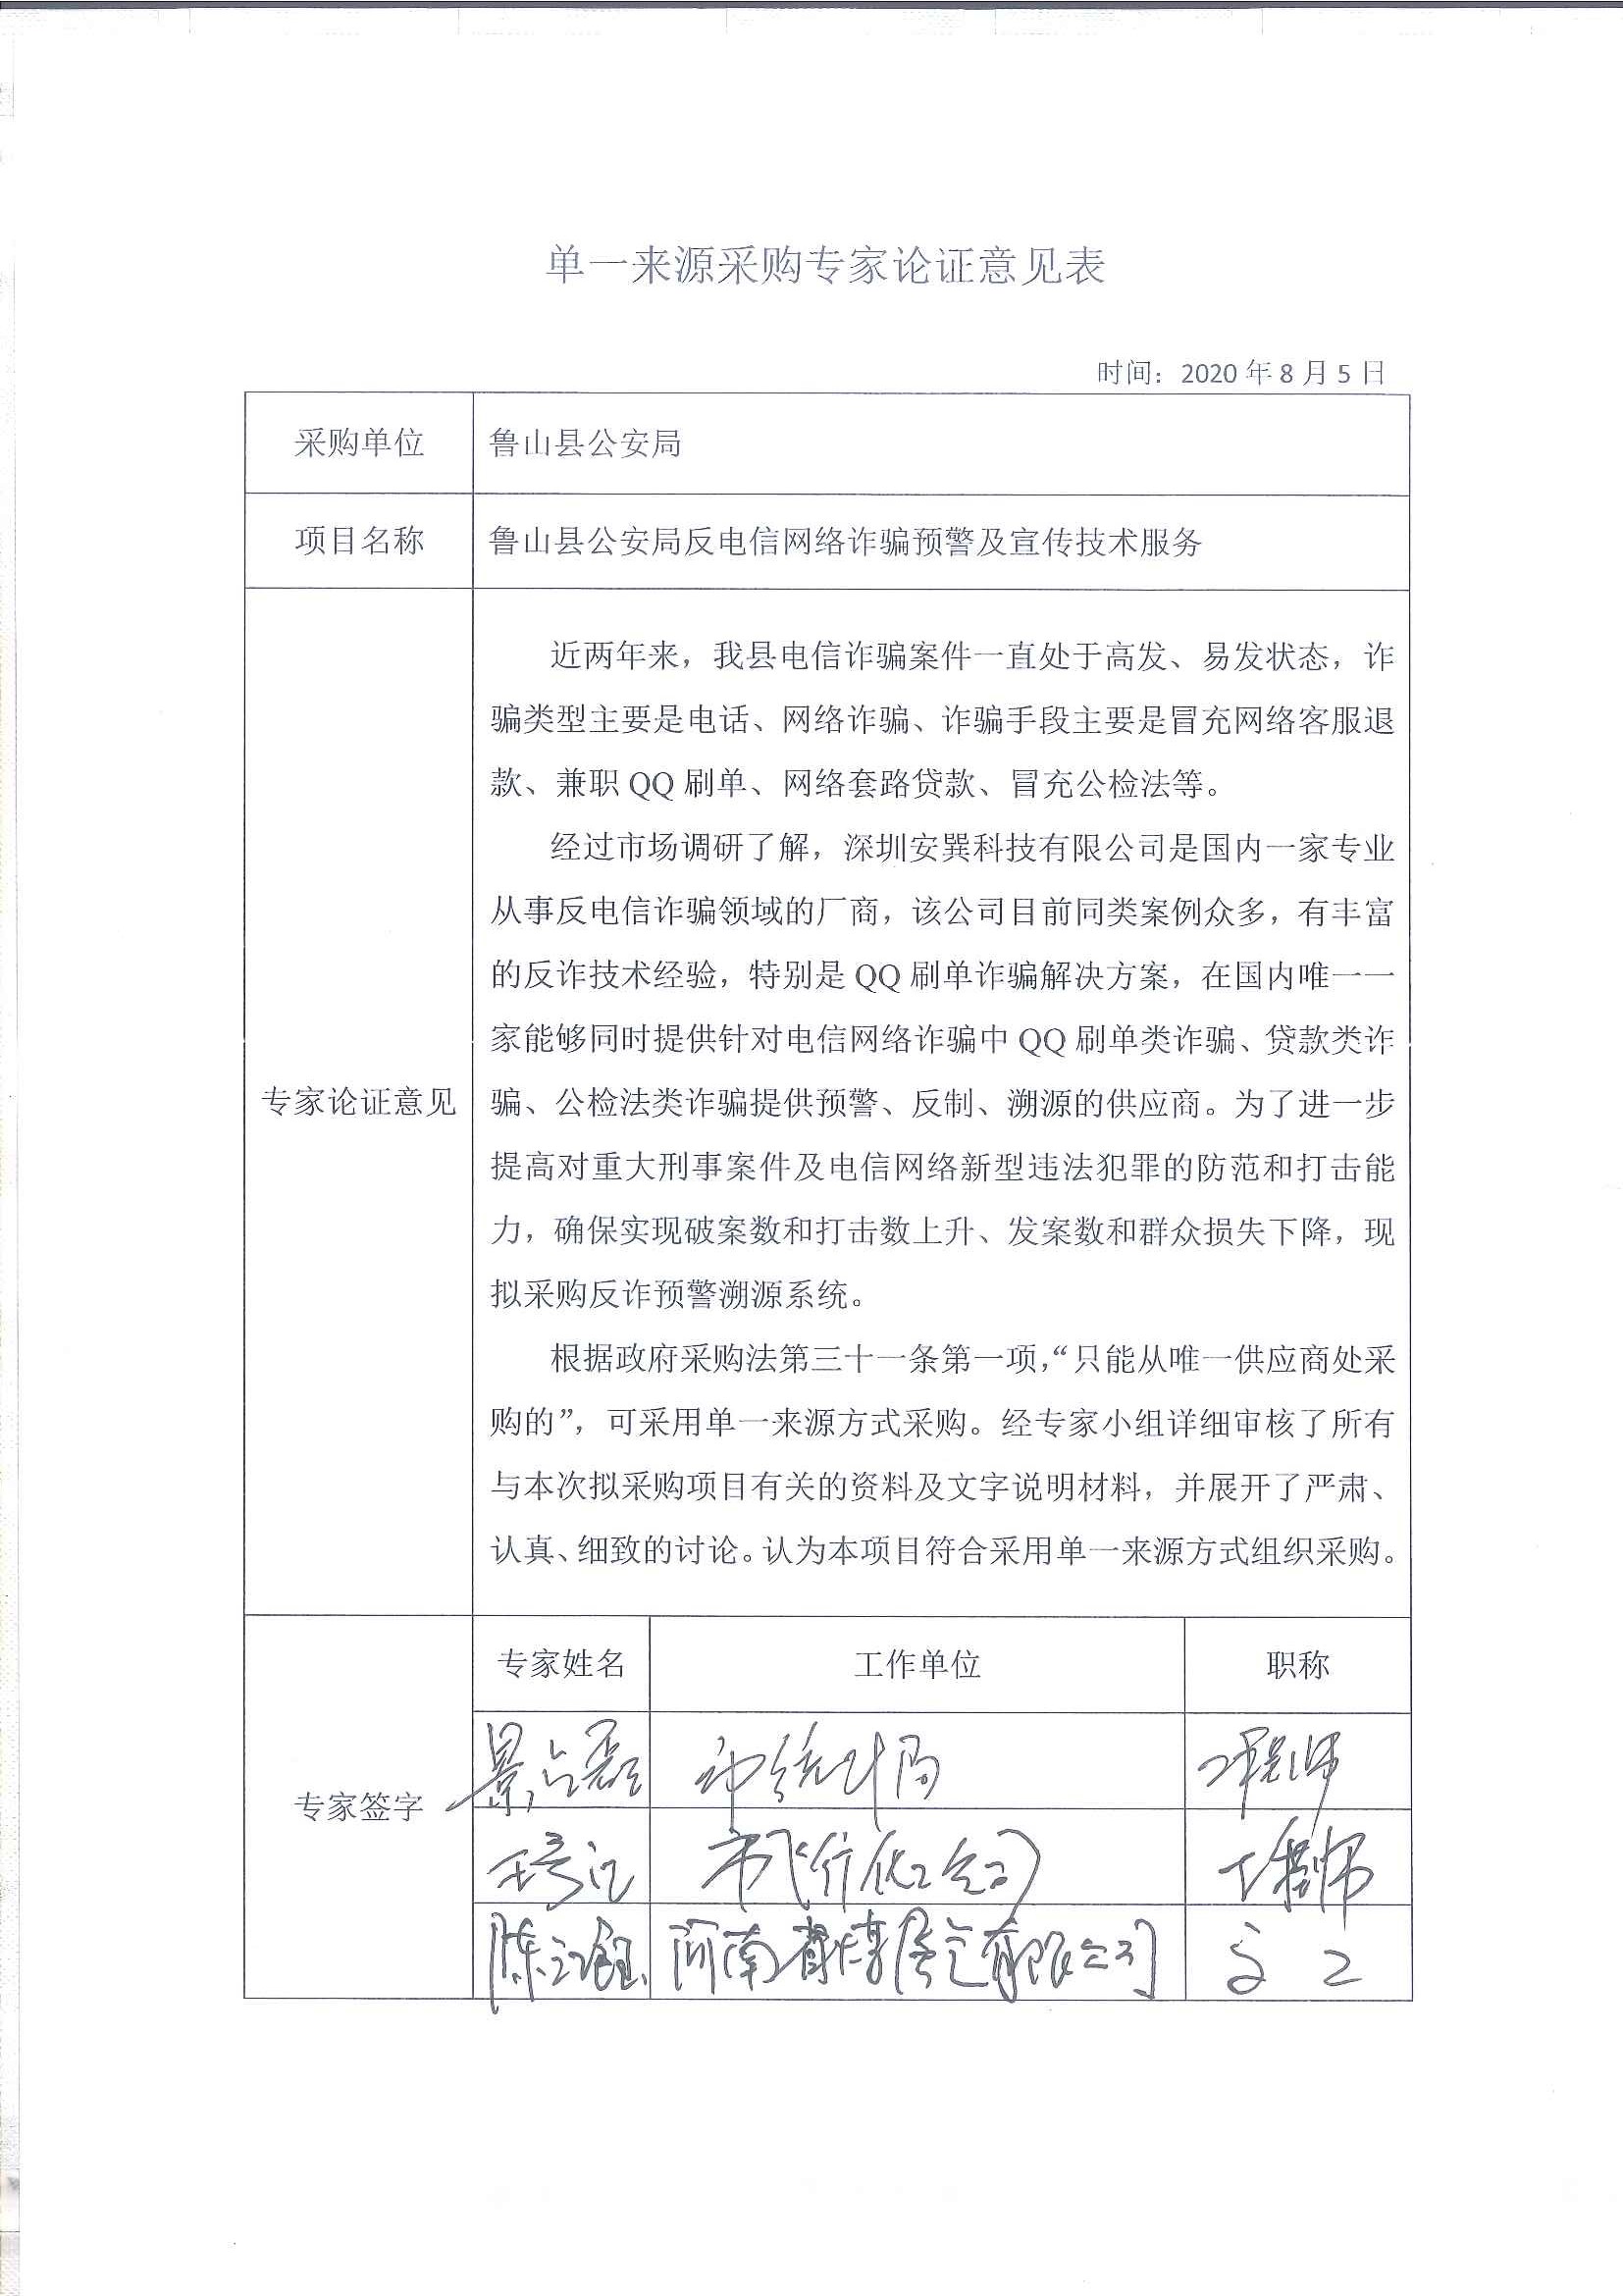 单一来源采购专家论证意见表
时间：2020年8月5日
采购单位 鲁山县公安局
项目名称 鲁山县公安局反电信网络诈骗预警及宣传技术服务
专家论证意见
近两年来，我县电信诈骗案件一直处于高发、易发状态，诈
骗类型主要是电话、网络诈骗、诈骗手段主要是冒充网络客服退
款、兼职 QQ 刷单、网络套路贷款、冒充公检法等。
经过市场调研了解，深圳安巽科技有限公司是国内一家专业
从事反电信诈骗领域的厂商，该公司目前同类案例众多，有丰富
的反诈技术经验，特别是 QQ 刷单诈骗解决方案，在国内唯一一
家能够同时提供针对电信网络诈骗中 QQ 刷单类诈骗、贷款类诈
骗、公检法类诈骗提供预警、反制、溯源的供应商。为了进一步
提高对重大刑事案件及电信网络新型违法犯罪的防范和打击能
力，确保实现破案数和打击数上升、发案数和群众损失下降，现
拟采购反诈预警溯源系统。
根据政府采购法第三十一条第一项，“只能从唯一供应商处采
购的”，可采用单一来源方式采购。经专家小组详细审核了所有
与本次拟采购项目有关的资料及文字说明材料，并展开了严肃、
认真、细致的讨论。认为本项目符合采用单一来源方式组织采购。
专家签字
专家姓名 工作单位 职称
统计局 工程师
工程师
河南省 有限公司 高工